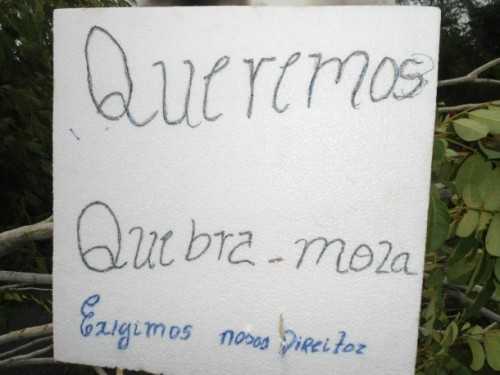 Queremos
Quebra-mola
Exigimos nosos Direitos